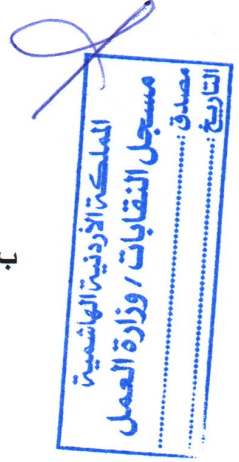 المملكة الأردنية الهاشمية
مسجل النقابات / وزارة العمل
مصدق :
التاريخ :